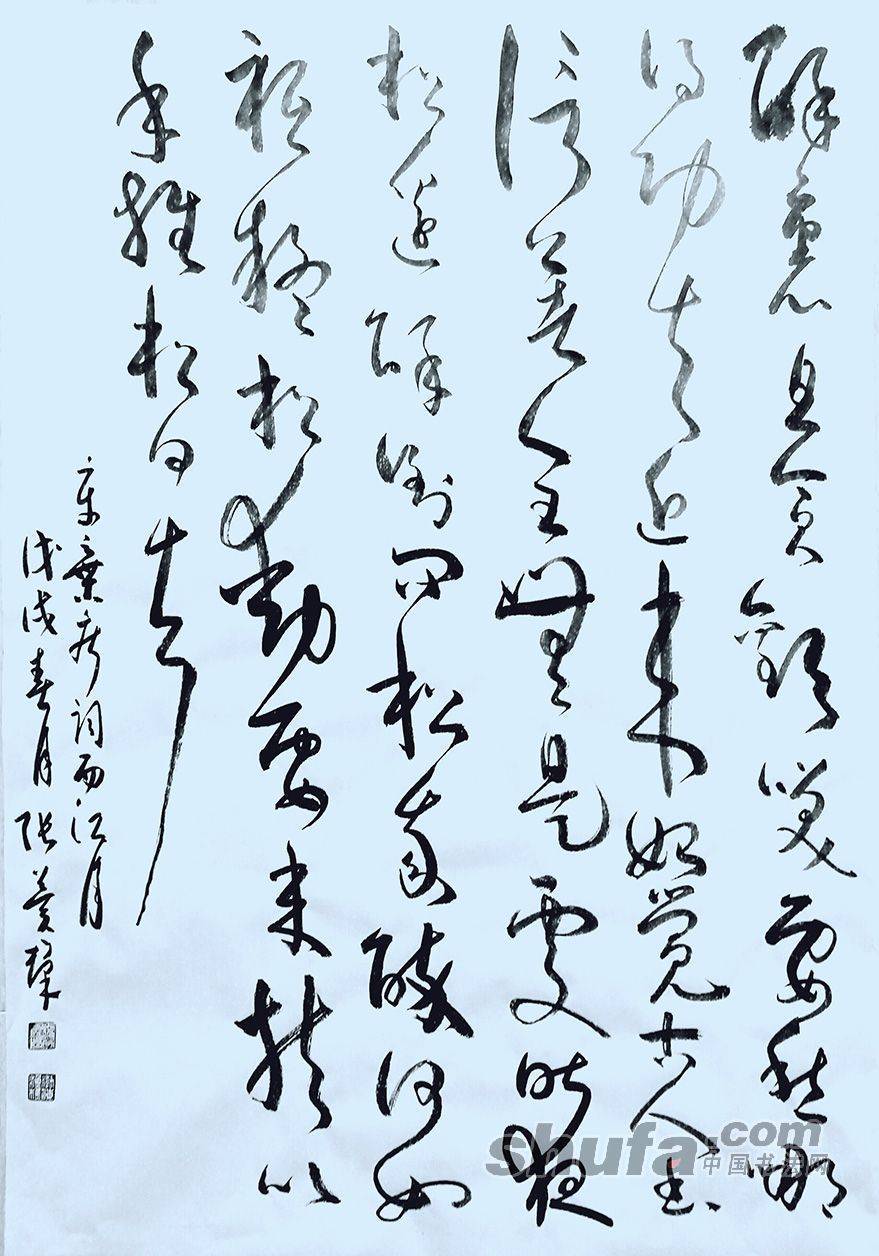 醉裏且貪歡笑要愁那
得功夫近来始覺古人書
信著全無是處昨夜
松邊醉倒问松我醉何如
祇疑松動要来扶以
手推松曰去
辛棄疾詞西江月
戊戌春月張
shufa.com
中国书法网